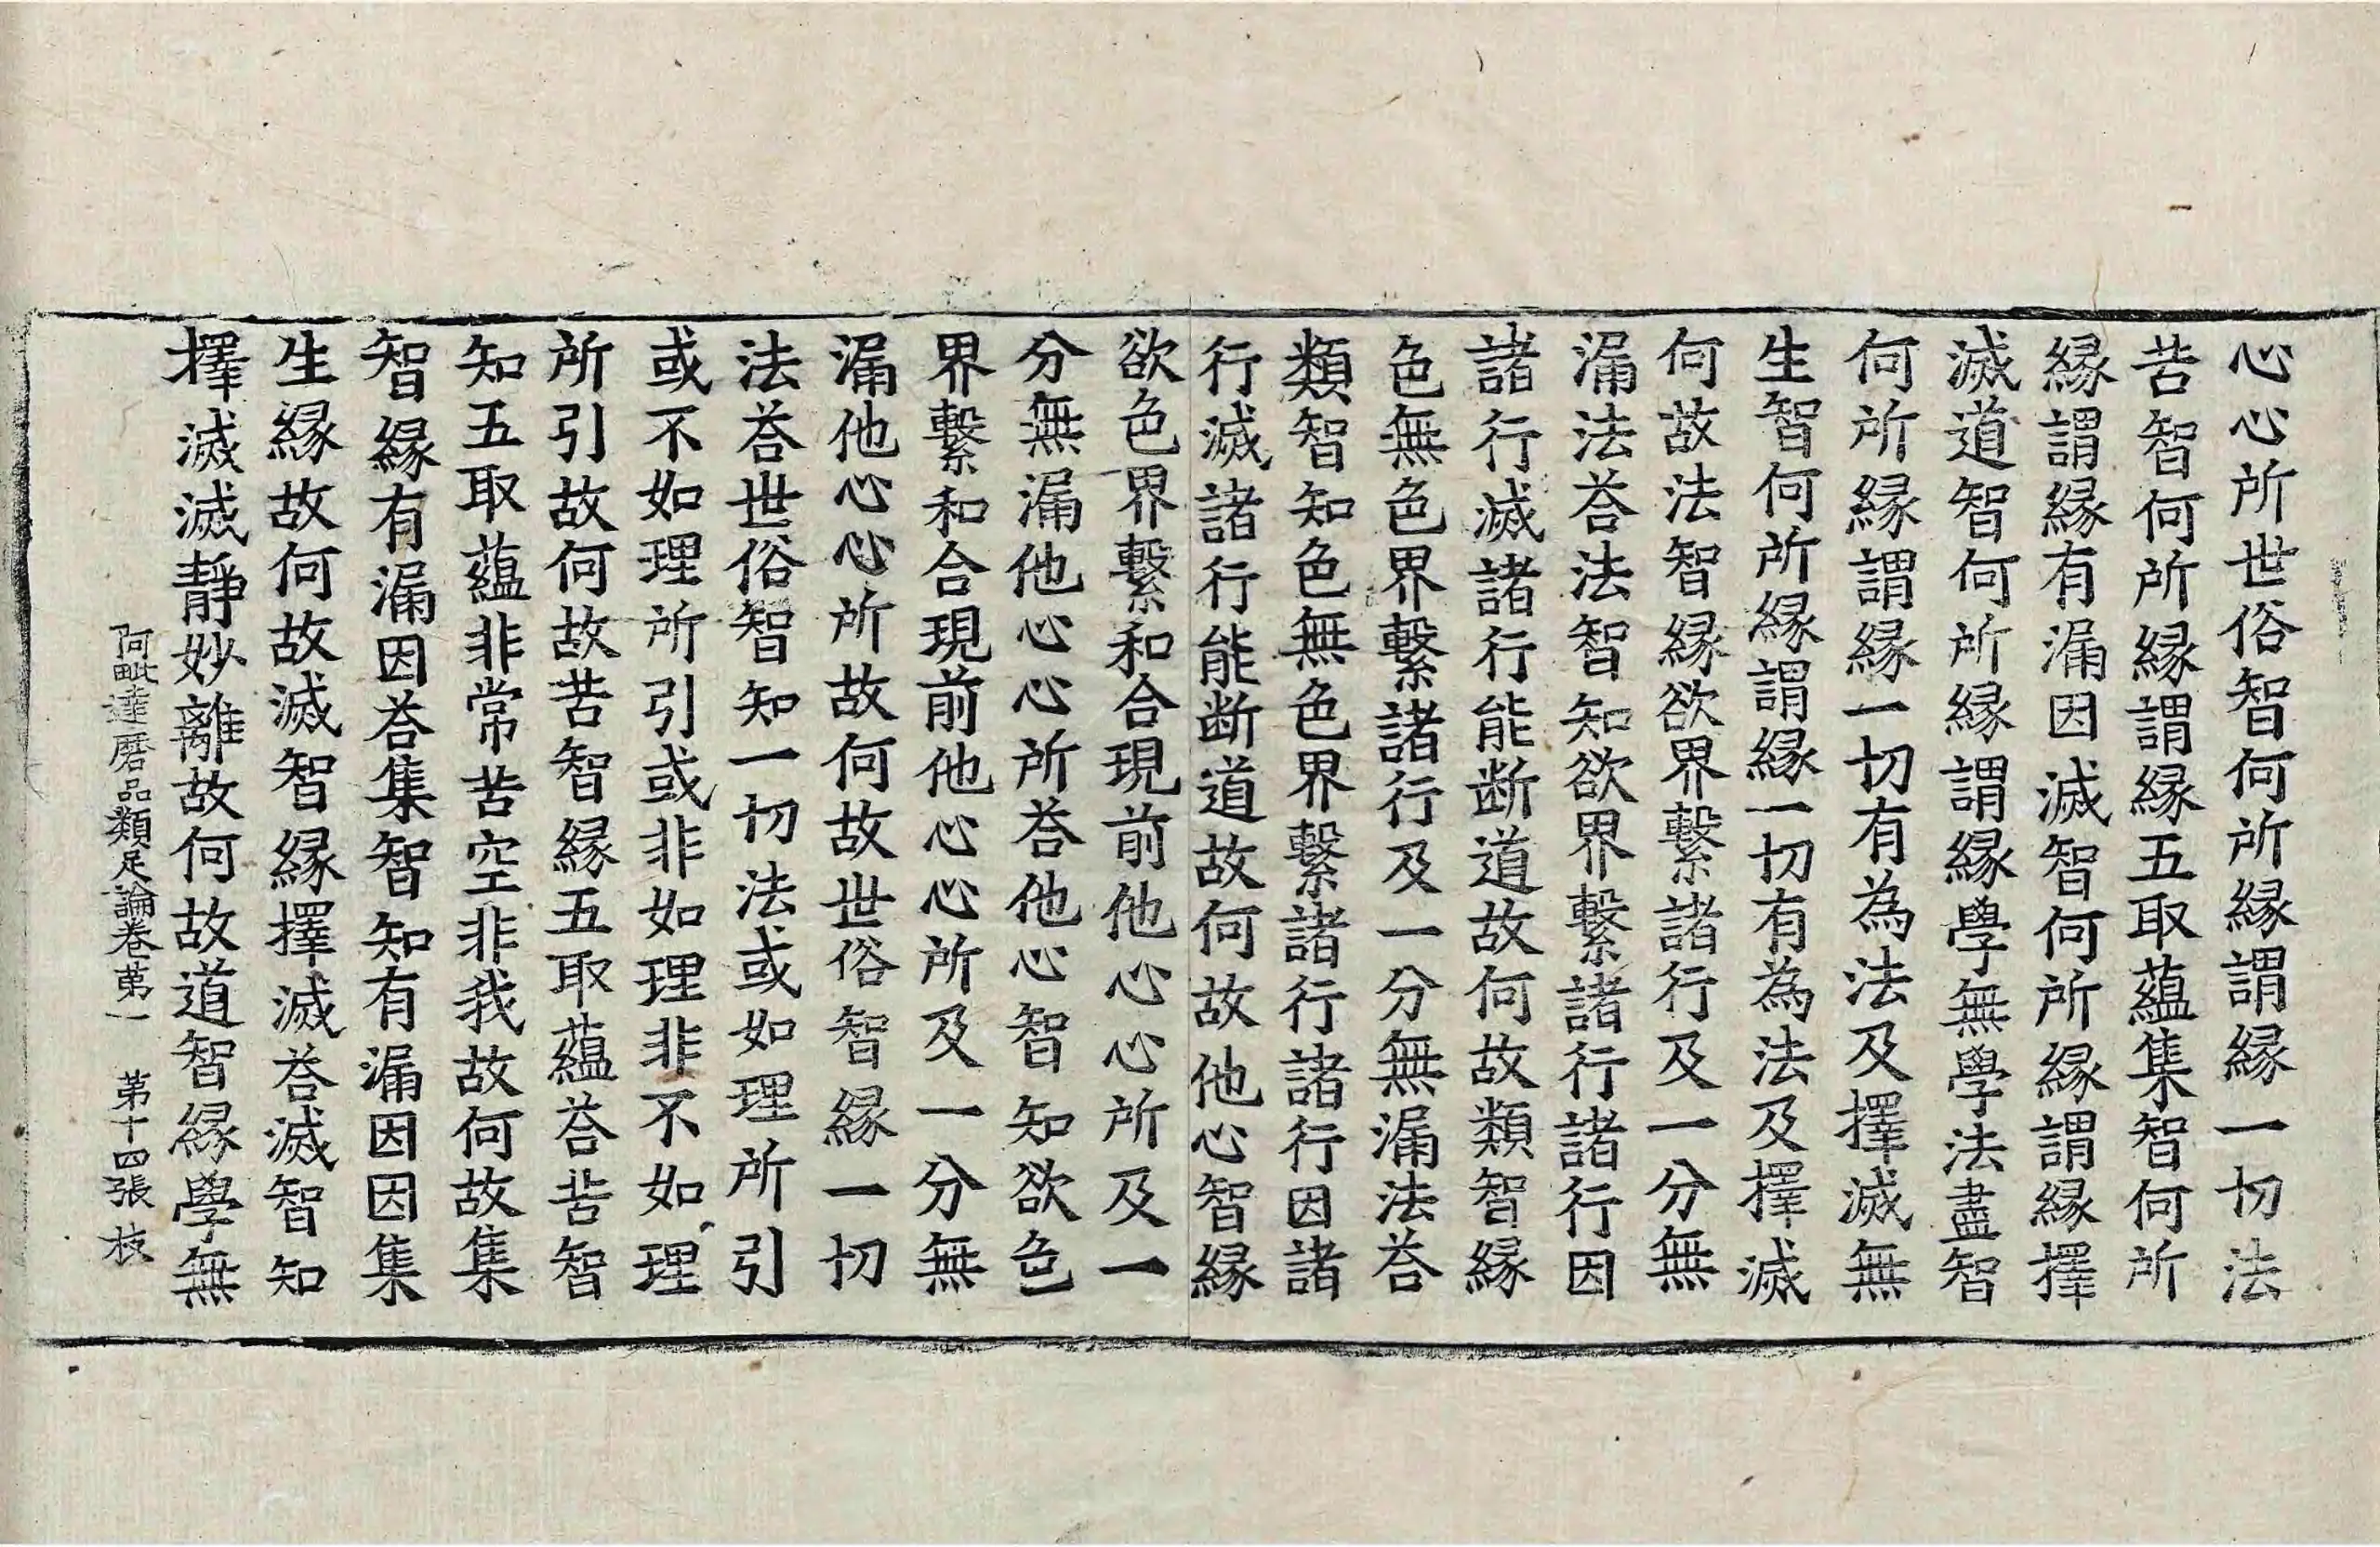 心心所世俗智何所縁謂縁一切法
苦智何所縁謂縁五取蘊集智何所
縁謂縁有漏因滅智何所縁謂縁擇
滅道智何所縁謂縁學無學法盡智
何所縁謂縁一切有為法及擇滅無
生智何所縁謂縁一切有為法及擇滅
何故法智縁欲界繫諸行及一分無
漏法荅法智知欲界繫諸行諸行因
諸行滅諸行能断道故何故類智縁
色無色界繫諸行及一分無漏法荅
類智知色無色界繫諸行諸行因諸
行滅諸行能断道故何故他心智縁
欲色界繫和合現前他心心所及一
分無漏他心心所荅他心智知欲色
界繫和合現前他心心所及一分無
漏他心心所故何故世俗智縁一切
法荅世俗智知一切法或如理所引
或不如理所引或非如理非不如理
所引故何故苦智縁五取蘊荅苦智
知五取蘊非常苦空非我故何故集
智縁有漏因荅集智知有漏因因集
生縁故何故滅智縁擇滅荅滅智知
擇滅滅靜妙離故何故道智縁學無
阿毗達磨品類足論卷苐一　第十四張　枝